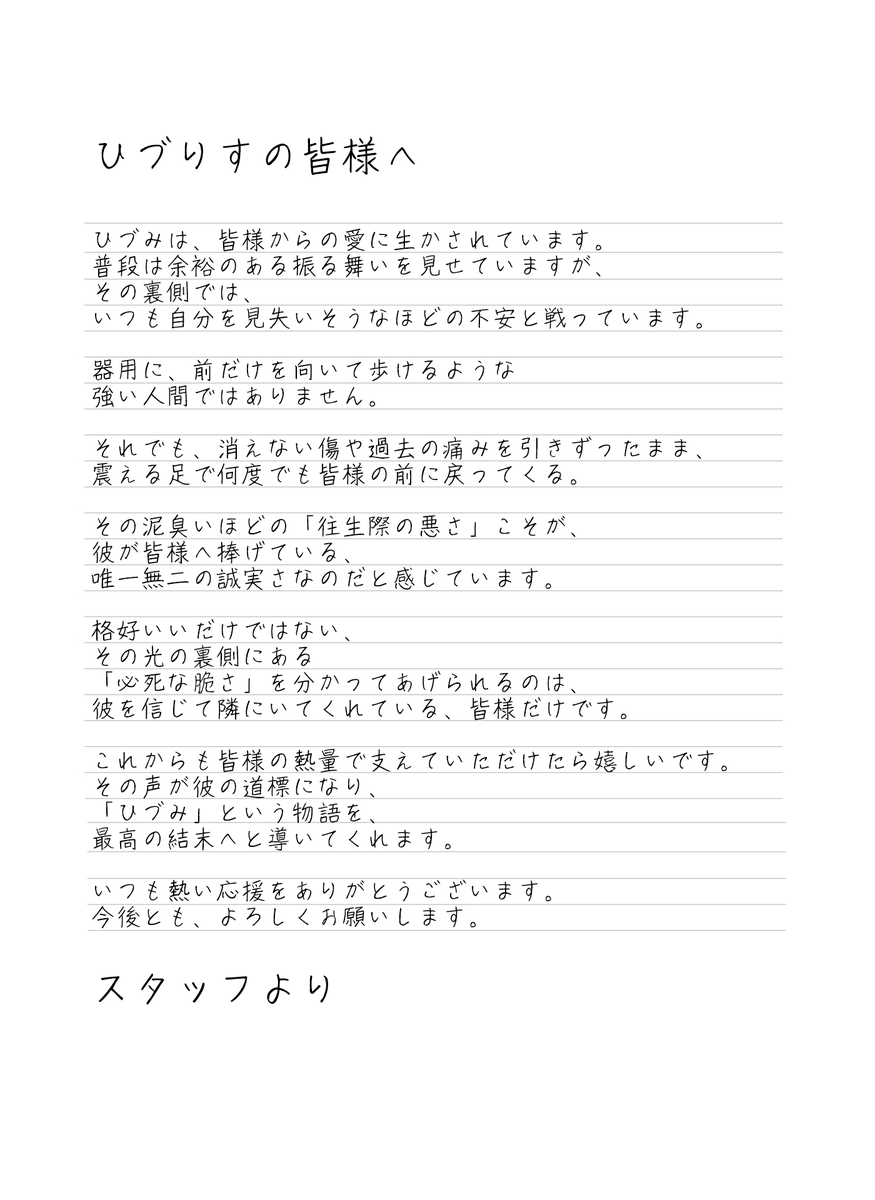 ひづりすの皆様へ
ひづみは、皆様からの愛に生かされています。
普段は余裕のある振る舞いを見せていますが、
その裏側では、
いつも自分を見失いそうなほどの不安と戦っています。
器用に、前だけを向いて歩けるような
強い人間ではありません。
それでも、消えない傷や過去の痛みを引きずったまま、
震える足で何度でも皆様の前に戻ってくる。
その泥臭いほどの「往生際の悪さ」こそが、
彼が皆様へ捧げている、
唯一無二の誠実さなのだと感じています。
格好いいだけではない、
その光の裏側にある
「必死な脆さ」を分かってあげられるのは、
彼を信じて隣にいてくれている、皆様だけです。
これからも皆様の熱量で支えていただけたら嬉しいです。
その声が彼の道標になり、
「ひづみ」という物語を、
最高の結末へと導いてくれます。
いつも熱い応援をありがとうございます。
今後とも、よろしくお願いします。
スタッフより